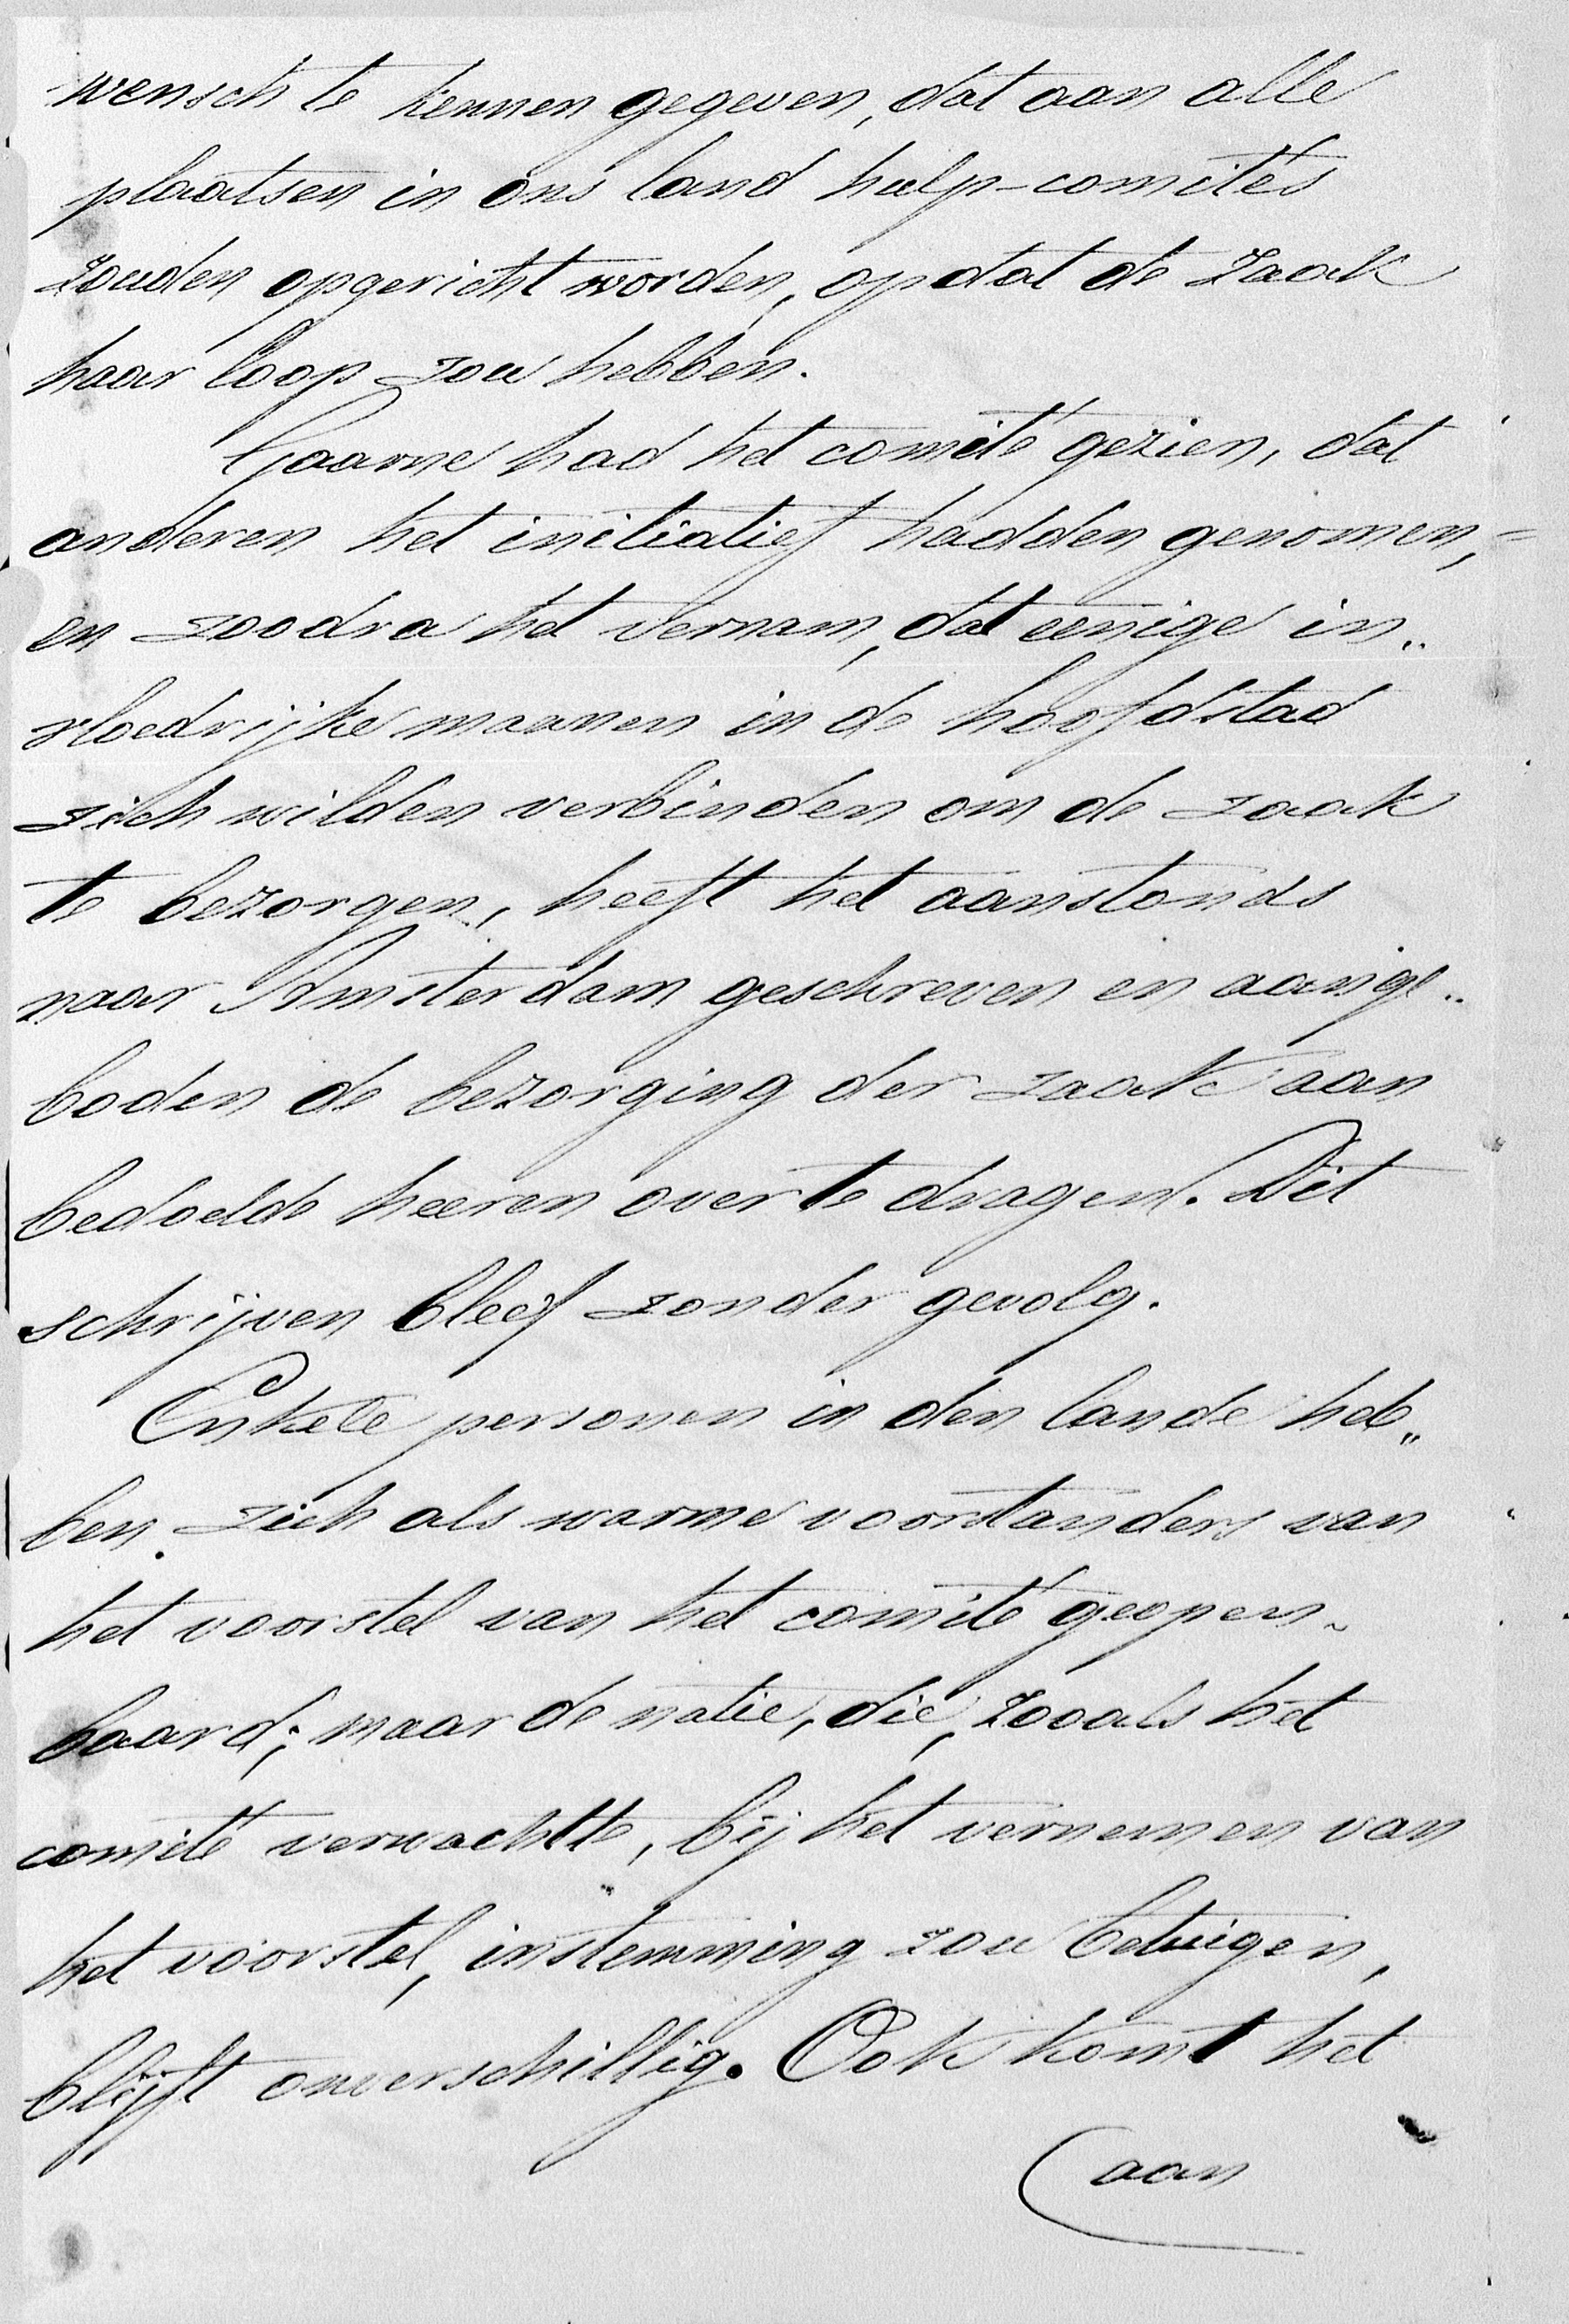 wensch te kennen gegeven, dat aan alle
plaatsen in ons land hulp-comités
zouden opgericht worden, opdat de zaak
haar loop zou hebben.
Gaarne had het comité gezien, dat
anderen het initiatief hadden genomen,
en zoodra het vernam, dat eenige in„
vloedrijke mannen in de hoofdstad
zich wilden verbinden om de zaak
te bezorgen, heeft het aanstonds
naar Amsterdam geschreven en aange„
boden de bezorging der zaak aan
bedoelde heeren over te dragen. Dit
schrijven bleef zonder gevolg.
Enkele personen in den lande heb„
ben zich als warme voorstanders van
het voorstel van het comité geopen-
baard; maar de natie, die, zooals het
comité verwachtte, bij het vernemen van
het voorstel, instemming zou betuigen,
blijft onverschillig. Ook komt het
aan